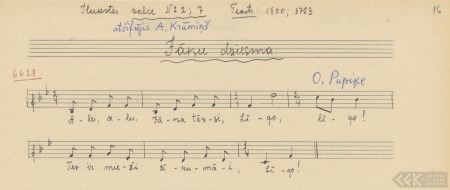 Ilūkstes valce № 2; 7 Teksts: 1900; 3753 16
atšifrējis A. Krūmiņš
Jāņu dziesma
6621
O. Pupiķe
A-lu, a-lu, Jā-na tēv-si, Lī-go, lī-go!
Tev ir mie-ži tī-ru-mā-i, Lī-go!